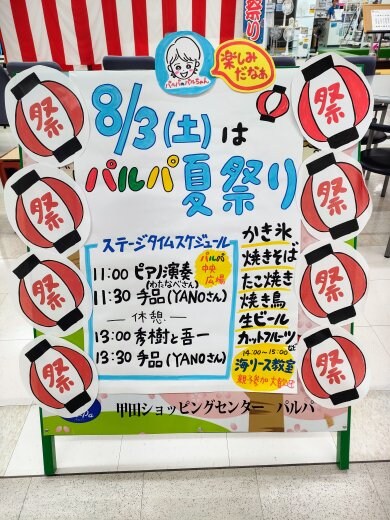 祭り
パルパルちゃん
楽しみ
だなぁ
8/3(土)は
パルパ夏祭り
祭
祭
祭
祭
祭
祭
祭
祭
ステージタイムスケジュール
パルパ
中央
広場
11:00 ピアノ演奏
(わたなべさん)
11:30 手品(YANOさん)
―休憩―
13:00 秀樹と吾一
13:30 手品(YANOさん)
かき氷
焼きそば
たこ焼き
焼き鳥
生ビール
カットフルーツ
など
14:00~15:00
海リース教室
親子参加大歓迎
甲田ショッピングセンター パルパ